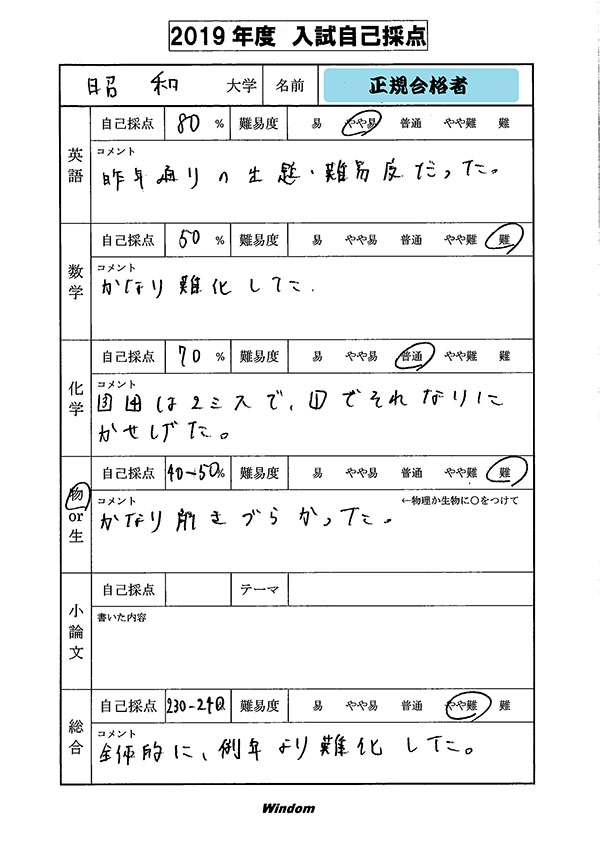 2019年度 入試自己採点
昭和 大学 名前 正規合格者
英語 自己採点 80 % 難易度 易 やや易 普通 やや難 難
コメント
昨年通りの出題・難易度だった。
数学 自己採点 50 % 難易度 易 やや易 普通 やや難 難
コメント
かなり難化してた.
化学 自己採点 70 % 難易度 易 やや易 普通 やや難 難
コメント
3 4 は2ミスで、1 でそれなりに
かせげた。
物or生 自己採点 40-50% 難易度 易 やや易 普通 やや難 難
コメント ←物理か生物に○をつけて
かなり解きづらかった。
小論文 自己採点 テーマ
書いた内容
総合 自己採点 230-240 難易度 易 やや易 普通 やや難 難
コメント
全体的に、例年より難化してた。
Windom